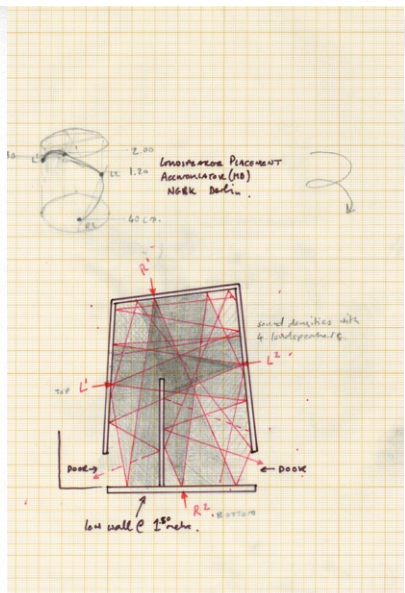 L1
2.00
L2 1.20
R2
40 cm.
LOUDSPEAKER PLACEMENT
ACCUMULATOR (MB)
NGBK Berlin.
R1
sound densities with
4 loudspeakers.
L2
TOP L1
DOOR
DOOR
R2
BOTTOM
low wall @ 1.50 metre.